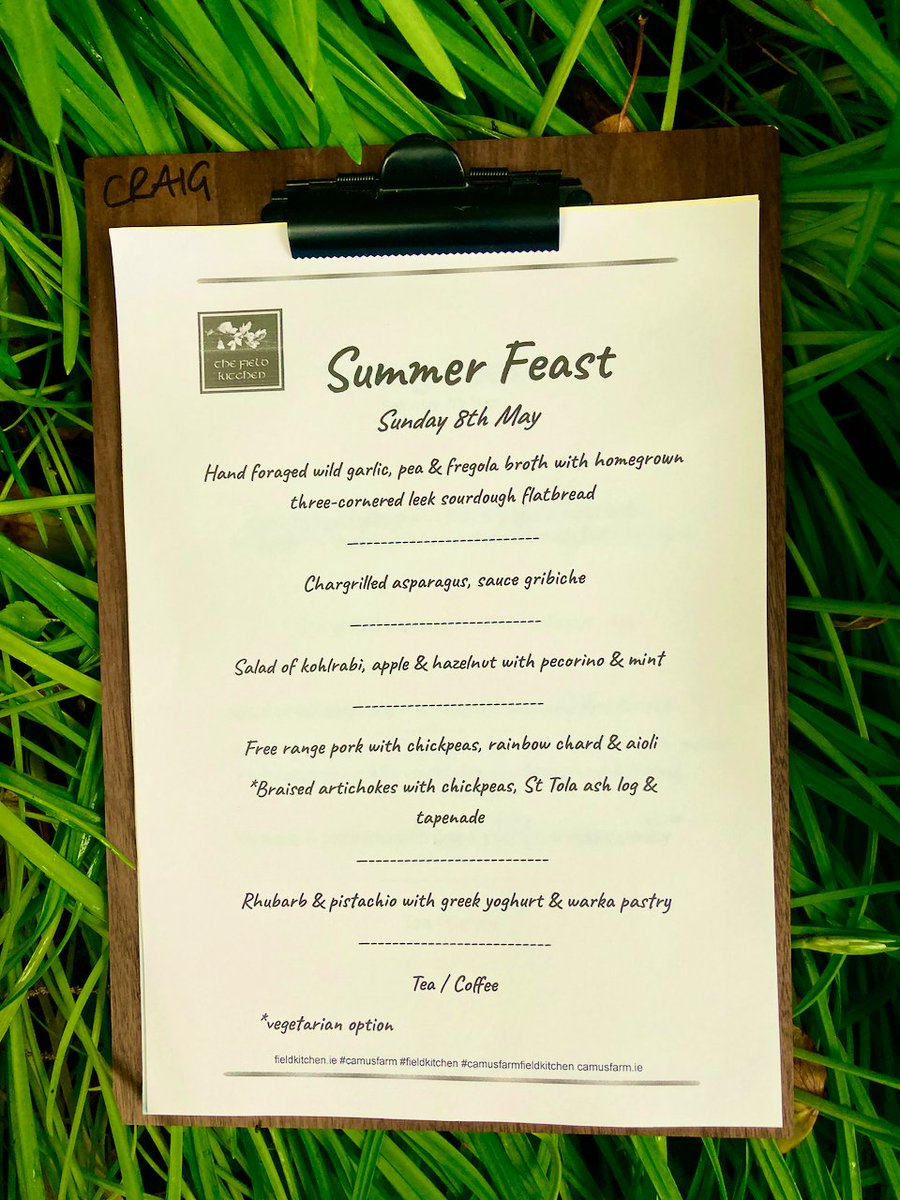 CRAIG
THE FIELD
KITCHEN
Summer Feast
Sunday 8th May
Hand foraged wild garlic, pea & fregola broth with homegrown
three-cornered leek sourdough flatbread
Chargrilled asparagus, sauce gribiche
Salad of kohlrabi, apple & hazelnut with pecorino & mint
Free range pork with chickpeas, rainbow chard & aioli
*Braised artichokes with chickpeas, St Tola ash log &
tapenade
Rhubarb & pistachio with greek yoghurt & warka pastry
Tea / Coffee
*vegetarian option
fieldkitchen.ie #camusfarm #fieldkitchen #camusfarmfieldkitchen camusfarm.ie